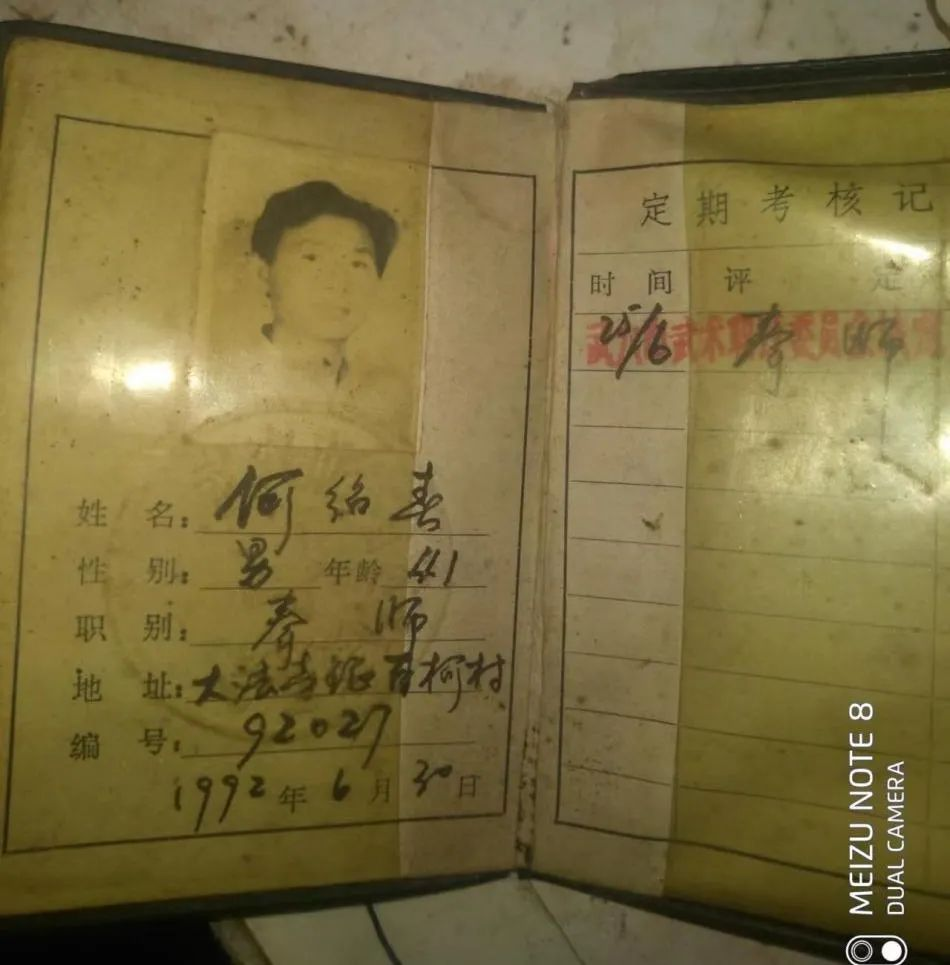 姓名：何绍春
性别：男 年龄 41
职别：拳师
地址：大法寺镇百柯村
编号：92027
1992年6月30日
定期考核记
时间 评定
25/6 拳师
武术 委员会
MEIZU NOTE 8
DUAL CAMERA